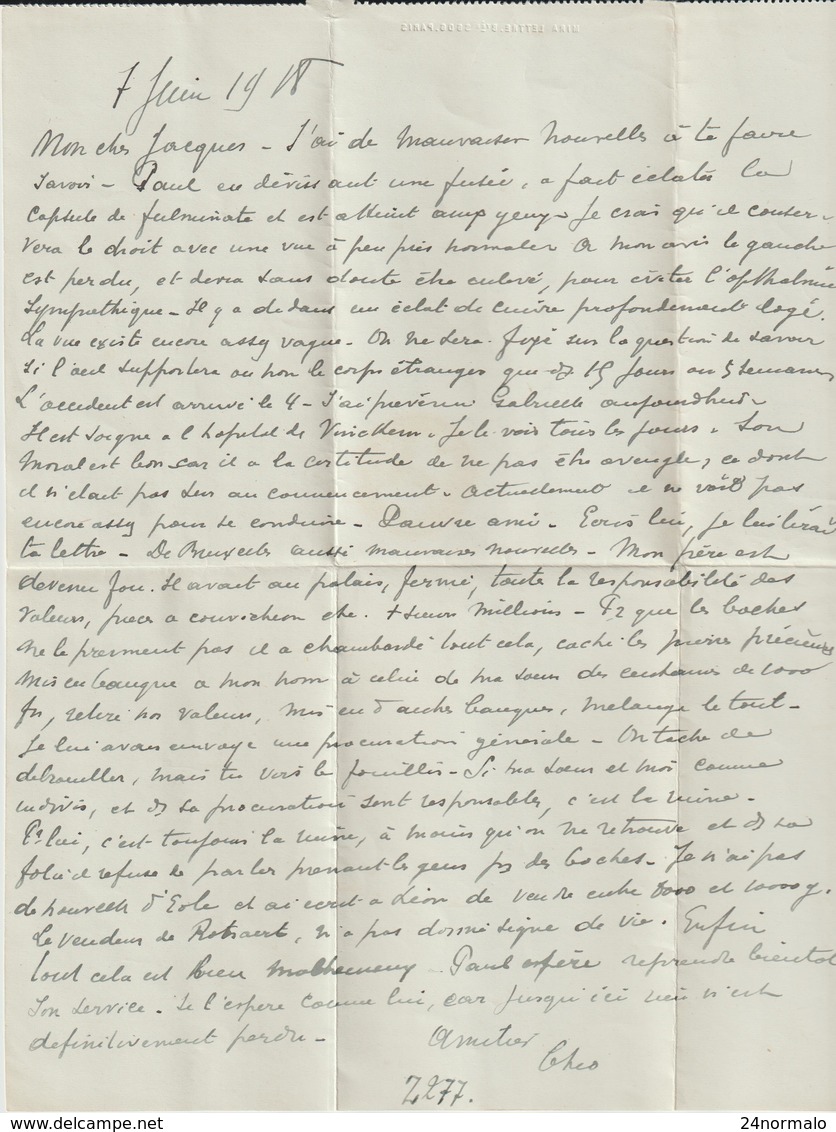 7 Juin 1918
Mon cher Jacques - J'ai de mauvaises nouvelles à te faire
savoir - Paul en dévissant une fusée, a fait éclater la
capsule de fulminate et est atteint aux yeux - Je crois qu'il conser-
vera le droit avec une vue à peu près normale. A mon avis le gauche
est perdu, et devra sans doute être enlevé, pour éviter l'opthalmie
sympathique - Il y a dedans un éclat de cuivre profondément logé.
La vue existe encore assez vague - On ne sera fixé sur la question de savoir
si l'oeil supportera ou non le corps étranger que ds 15 jours ou 5 semaines
L'accident est arrivé le 4 - J'ai prévenu Gabrielle aujourdhui -
Il est soigné a l'hopital de Vinckem. Je le vois tous les jours. Son
moral est bon car il a la certitude de ne pas être aveugle, ce dont
il n'était pas sur au commencement - Actuellement il ne voit pas
encore assez pour se conduire - Pauvre ami - Ecris lui, je lui lirai
ta lettre - De Bruxelles aussi mauvaises nouvelles - Mon frère est
devenu fou. Il avait au palais, fermé, toute la responsabilité des
valeurs, pieces a conviction etc. + sieurs millions - Pr que les boches
ne le prennent pas il a chambardé tout cela, caché les pierres précieuses
mis en banque a mon nom à celui de ma soeur des centaines de 1000
frs, retiré nos valeurs, mis en d'autres banques, mélangé le tout -
Je lui avais envoyé une procuration générale - On tache de
debrouiller, mais tu vois le fouillis - Si ma soeur et moi comme
indivis, et ds sa procuration sont responsables, c'est la ruine -
Pr lui, c'est toujours la ruine, à moins qu'on ne retrouve et ds sa
folie il refuse de parler prenant les gens pr des boches - Je n'ai pas
de nouvelle d'Eole et ai ecrit a Léon de vendre entre 8000 et 10000 f.
Le vendeur de Rotsaert, n'a pas donné signe de vie. Enfin
tout cela est bien malheureux - Paul espère reprendre bientot
son service - Je l'espere comme lui, car jusqu'ici rien n'est
definitivement perdu -
Amities
Theo
Z277.
24normalo